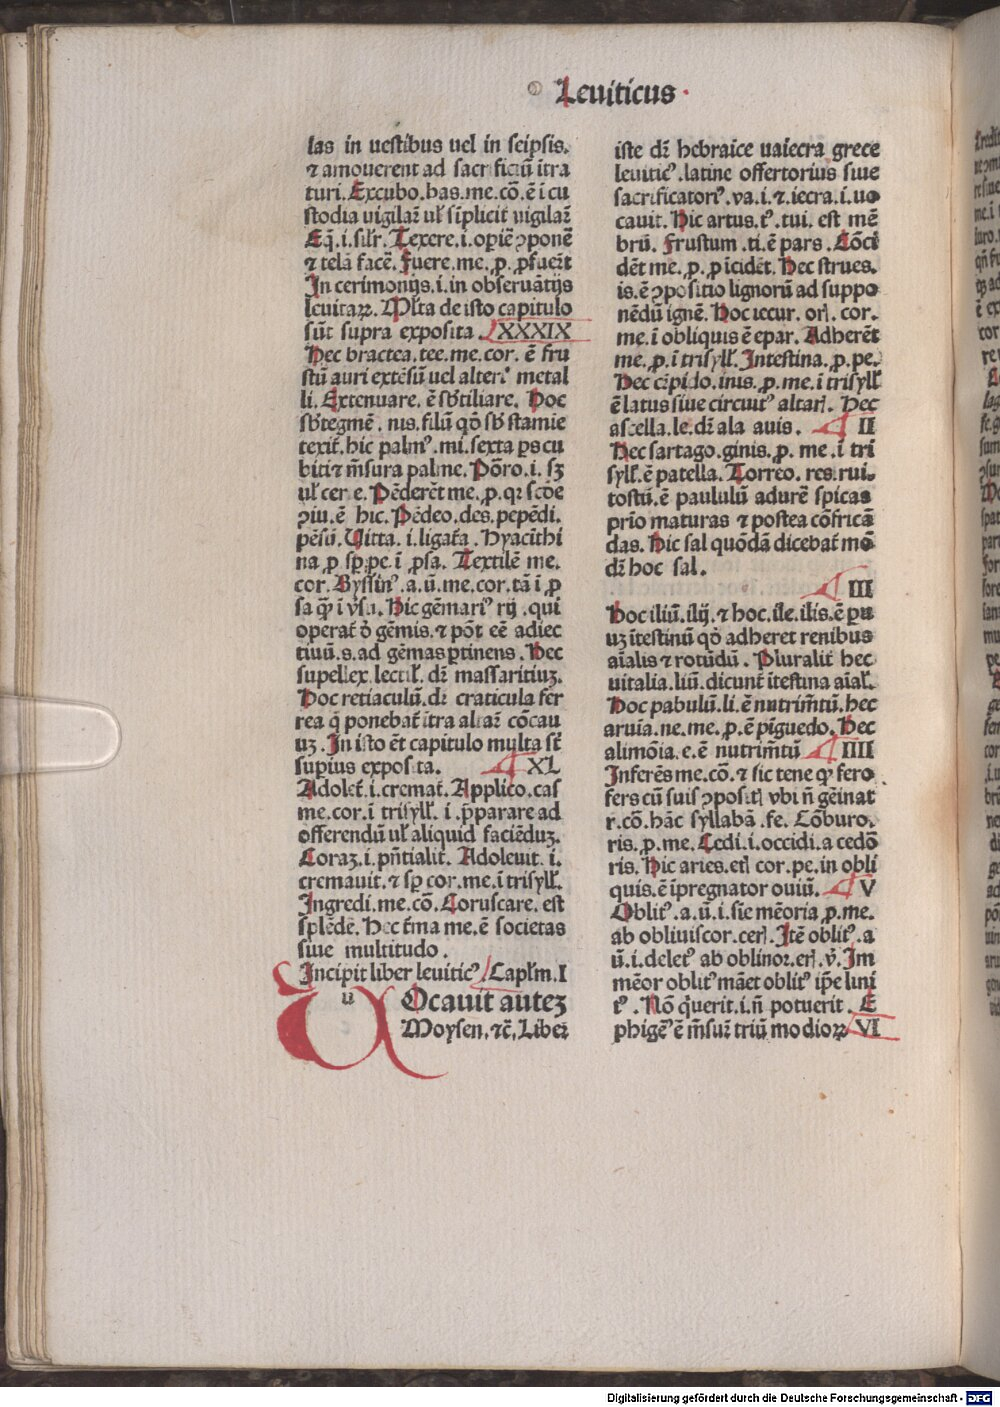 Leuiticus.
las in uestibus uel in seipsis.
⁊ amouerent ad sacrificiū ītra
turi. Excubo.bas.me.cō.ē i cu
stodia uigilaꝫ ul̄ sīplicit̄ uigilaꝫ
Eq̄.i.sil̄r. Texere.i.opiē ꝯponē
⁊ telā facē. Fuere.me.ꝓ.ꝓfuer̄t
In cerimonijs.i.in obseruātijs
leuitaꝝ. Ml̄ta de isto capitulo
sūt supra exposita. XXXIX
Hec bractea.tee.me.cor. ē fru
stū auri extēsū uel alteri᷒ metal
li. Extenuare. ē sb̄tiliare. Hoc
sb̄tegmē. nis. filū qd̄ sb̄ stamie
texit̄. hic palm᷒.mi.sexta ꝑs cu
biti ⁊ m̄sura palme. Pōro.i. sꝫ
ul̄ cer e. Pēderēt me.ꝓ.
ꝯiu.ē hic. Pēdeo.des.pepēdi.
pēsū. Uitta.i.ligat̄a. Hyacīthi
na ꝓ sp̄.pe.ī ꝓsa. Textilē me.
cor. Byssin᷒.a.ū.me.cor.tā ī ꝓ
sa qƺ̄ ī v̄sa. Hic gēmari᷒ rij.qui
operat̄ d̄ gēmis.⁊ pōt eē adiec
tiuū.s.ad gēmas ꝑtinens. Hec
supellex lectil̄. dr̄ massaritiuꝫ.
Hoc retiaculū.dr̄ craticula fer
rea q̄ ponebat̄ ītra altaꝫ cōcau
uꝫ. In isto ēt capitulo multa st̄
supius exposita. XL
Adolet̄.i.cremat̄. Applico.cas
me.cor.ī trisyll̄. i.p̄parare ad
offerendū ul̄ aliquid faciēduꝫ.
Coraꝫ.i.pn̄tialit̄. Adoleuit.i.
cremauit.⁊ sp̄ cor.me.ī trisyll̄.
Ingredi.me.cō. Coruscare. est
splēdē. Hec t̄ma me.ē societas
siue multitudo.
Incipit liber leuitic᷒. Capl̄m.I
u Ocauit autez
Moysen.⁊c̄. Liber
iste dr̄ hebraice uaiecra grece
leuitic᷒.latine offertorius siue
sacrificatori᷒.va.i.⁊.iecra.i.uo
cauit. Hic artus.t᷒.tui. est mē
brū. Frustum.ti.ē pars. Cōci
dēt me.ꝓ.ꝑ icidēt. Hec strues.
is.ē ꝯpositio lignorū ad suppo
nēdū ignē. Hoc iecur.orꝭ.cor.
me.ī obliquis ē epar. Adherēt
me.ꝓ.ī trisyll̄. Intestina.ꝓ.pe.
Hec crepido.inis.ꝓ.me.ī trisyll̄
ē latus siue circuit᷒ altarꝭ. Hec
ascella.le.dr̄ ala auis. II
Hec sartago.ginis.ꝓ.me.ī tri
syll̄.ē patella. Torreo.res.rui.
tostū.ē paululū adurē spicas
prīo maturas ⁊ postea cōfricā
das. Hic sal quōdā dicebat̄ mō
dr̄ hoc sal.
III
Hoc iliū.ilij.⁊ hoc.ile.ilis.ē ꝑu
uꝫ ītestinū qd̄ adheret renibus
aīalis ⁊ rotūdū. Pluralit̄ hec
uitalia.liū.dicunt̄ ītestina aīal̄.
Hoc pabulū.li.ē nutrim̄tū.hec
aruia.ne.me.ꝓ.ē pīguedo. Hec
alimōia.e.ē nutrim̄tū IIII
Inferēs me.cō.⁊ sic tene qƺ fero
fers cū suis ꝯpositꝭ vbi n̄ gēinat̄
r.cō.hāc syllabā.fe. Cōburo.
ris.ꝓ.me. Cedi.i.occidi.a cedō
ris. Hic aries.etꝭ cor.pe.in obli
quis.ē īpregnator ouiū. V
Oblit᷒.a.ū.i.sīe mēoria ꝓ.me.
ab obliuiscor.cerꝭ. Itē oblit᷒.a
ū.i.delet᷒ ab oblinor.erꝭ.v̄. Im
mēor oblit᷒ māet oblit᷒ ip̄e lini
t᷒. Nō q̄uerit.i.n̄ potuerit. E
phi gē᷒ ē m̄suꝫ triū modioꝝ VI
Digitalisierung gefördert durch die Deutsche Forschungsgemeinschaft - DFG